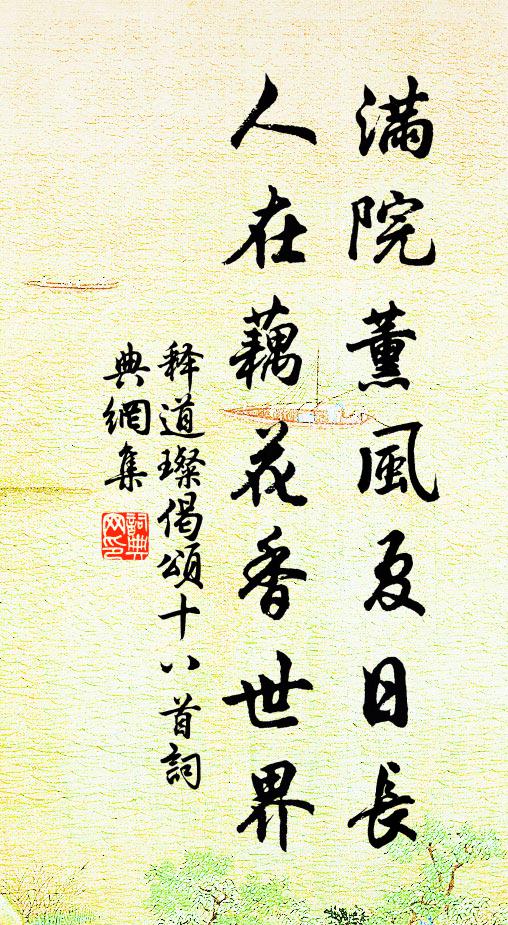 滿院薰風夏日長
人在藕花香世界
釋道璨偈頌十八首詞
典網集
詞典
网印